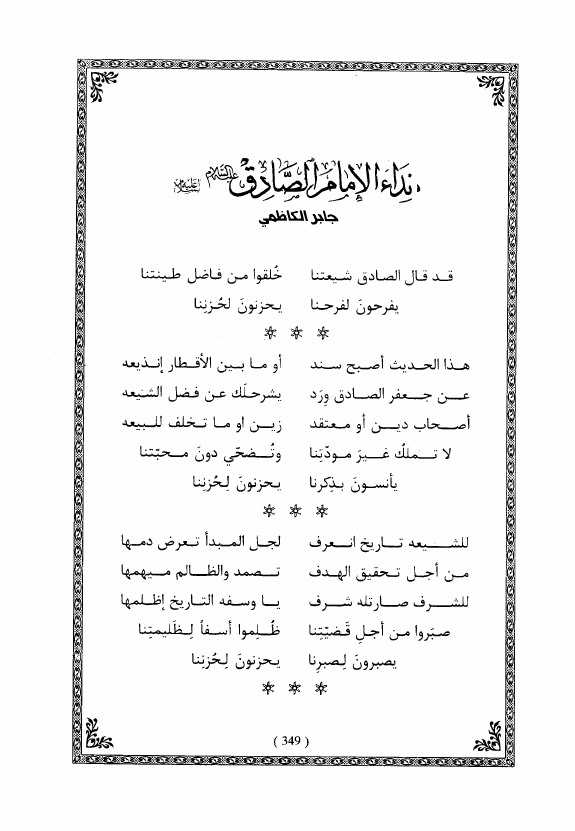 نِدَاءُ الإِمَامِ الصَّادِقِ عليه السلام
جابر الكاظمي
قـد قال الصادق شيعتنا خُلقوا من فاضل طـينتنا
يفرحونَ لفرحـنا يـحزنونَ لحُزنِنا
* * *
هـذا الحديث أصبح سـند أو ما بـين الأقـطار إنـذيعه
عـن جـعفر الصـادق ورَد يشرحلَك عـن فـضل الشيعه
أصـحاب ديـن أو معـتقد زيـن او ما تـخلف للـبيعه
لا تـملكُ غـيرَ مـودّتِنا وتُـضحّي دونَ مـحبّتنا
يأنسـونَ بـذِكرِنا يـحزنونَ لِحُزنِنا
* * *
للشـيعه تـاريخ انـعرف لجـل المـبدأ تـعرض دمـها
مـن أجـل تـحقيق الهدف تـصمد والظـالم مـيهمها
للشـرف صـارتله شـرف يـا وسـفه التـاريخ إظـلمها
صبَروا مـن أجلِ قَضيّتِنا ظُـلِموا أسـفاً لِـظَليمتِنا
يصبرونَ لِصبرِنا يـحزنونَ لِحُزنِنا
* * *
( 349 )